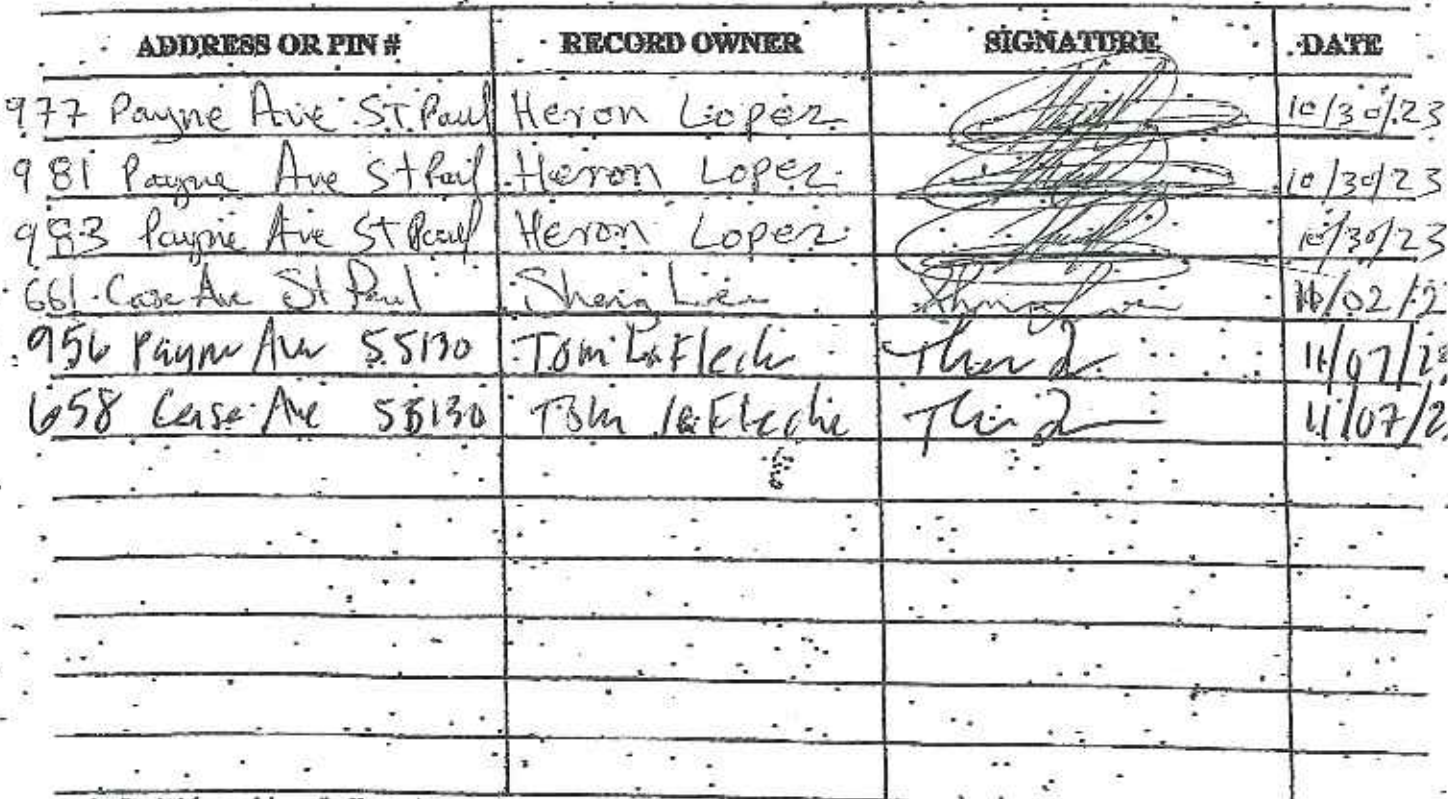 ADDRESS OR PIN # RECORD OWNER SIGNATURE DATE
977 Payne Ave St. Paul Heron Lopez 10/30/23
981 Payne Ave St Paul Heron Lopez 10/30/23
983 Payne Ave St Paul Heron Lopez 10/30/23
661 Case Ave St Paul 11/02/2
956 Payne Ave 55130 Tom LaFleche 11/07/23
658 Case Ave 55130 Tom LaFleche 11/07/2